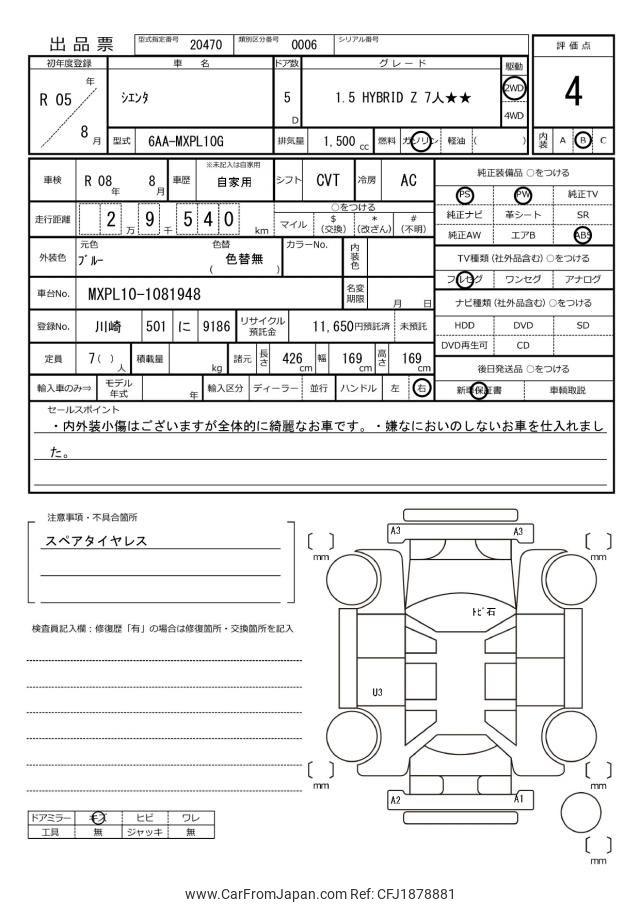 出品票 型式指定番号 20470 類別区分番号 0006 シリアル番号
評価点
4
内装 A B C
初年度登録 車名 ドア数 グレード 駆動
R 05 年 8 月
シエンタ 5 D 1.5 HYBRID Z 7人★★ 2WD
4WD
型式 6AA-MXPL10G 排気量 1,500 cc 燃料 ガソリン 軽油 ( )
車検 R 08 年 8 月 車歴 ※未記入は自家用 自家用 シフト CVT 冷房 AC
走行距離 2 万 9 千 5 4 0 km
○をつける
マイル $(交換) *(改ざん) #(不明)
外装色 元色 ブルー 色替 ( 色替無 ) カラーNo. 内装色
車台No. MXPL10-1081948 名変期限 月 日
登録No. 川崎 501 に 9186 リサイクル預託金 11,650円預託済 未預託
定員 7( )人 積載量 kg 諸元 長さ 426 cm 幅 169 cm 高さ 169 cm
輸入車のみ⇒ モデル年式 年 輸入区分 ディーラー 並行 ハンドル 左 右
純正装備品 ○をつける
PS PW 純正TV
純正ナビ 革シート SR
純正AW エアB ABS
TV種類(社外品含む)○をつける
フルセグ ワンセグ アナログ
ナビ種類(社外品含む)○をつける
HDD DVD SD
DVD再生可 CD
後日発送品 ○をつける
新車保証書 車輌取説
セールスポイント
・内外装小傷はございますが全体的に綺麗なお車です。・嫌なにおいのしないお車を仕入れまし
た。
注意事項・不具合箇所
スペアタイヤレス
検査員記入欄：修復歴「有」の場合は修復箇所・交換箇所を記入
ドアミラー キズ ヒビ ワレ
工具 無 ジャッキ 無
A3 A3
mm mm
トビ石
U3
mm mm
A2 A1
mm
www.CarFromJapan.com Ref: CFJ1878881